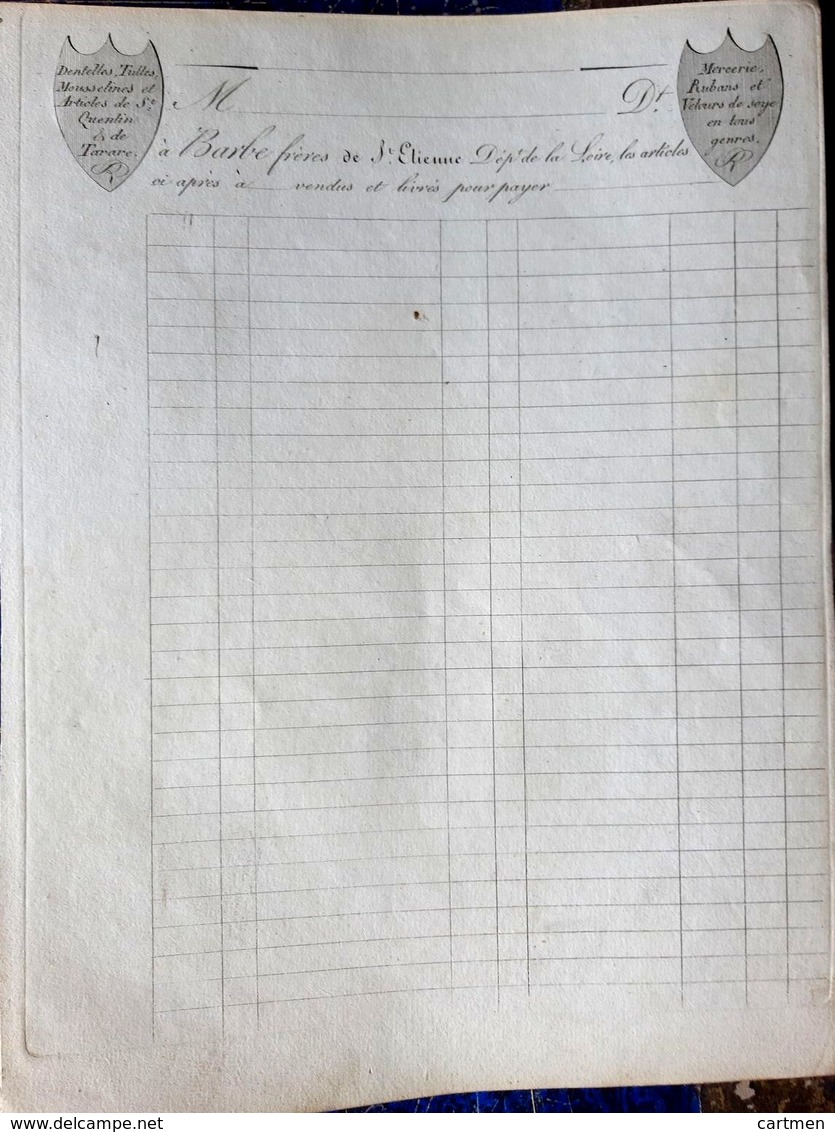 Dentelles, Tulles,
Mousselines et
Articles de St.
Quentin
& de
Tarare.
Mercerie,
Rubans et
Velours de soye
en tous
genres.
M Dt.
à Barbe frères de St. Etienne Dépt. de la Loire, les articles
ci après à vendus et livrés pour payer
www.delcampe.net
cartmen